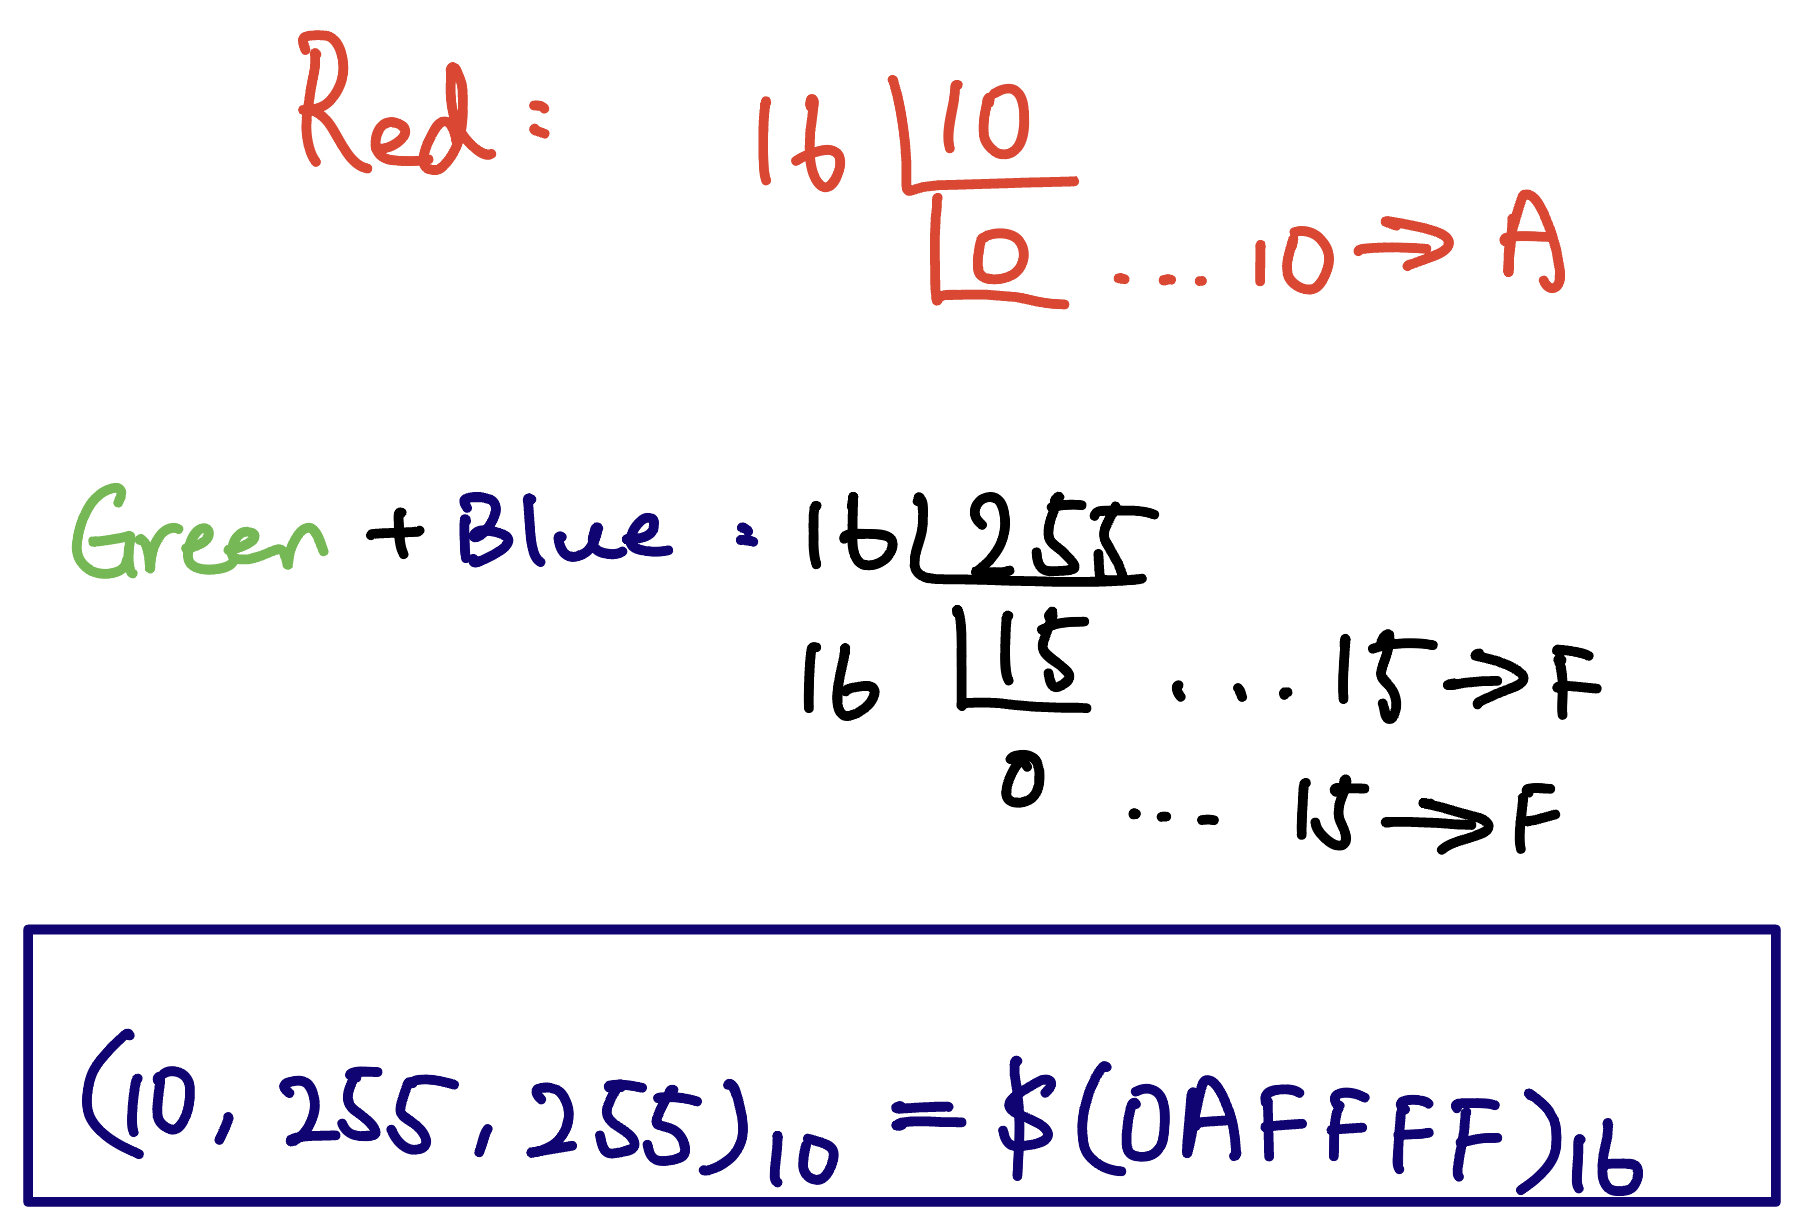 Red: 16 10
0 ... 10 → A
Green + Blue: 16 255
16 15 ... 15 → F
0 ... 15 → F
(10, 255, 255)10 = $(0AFFFF)16